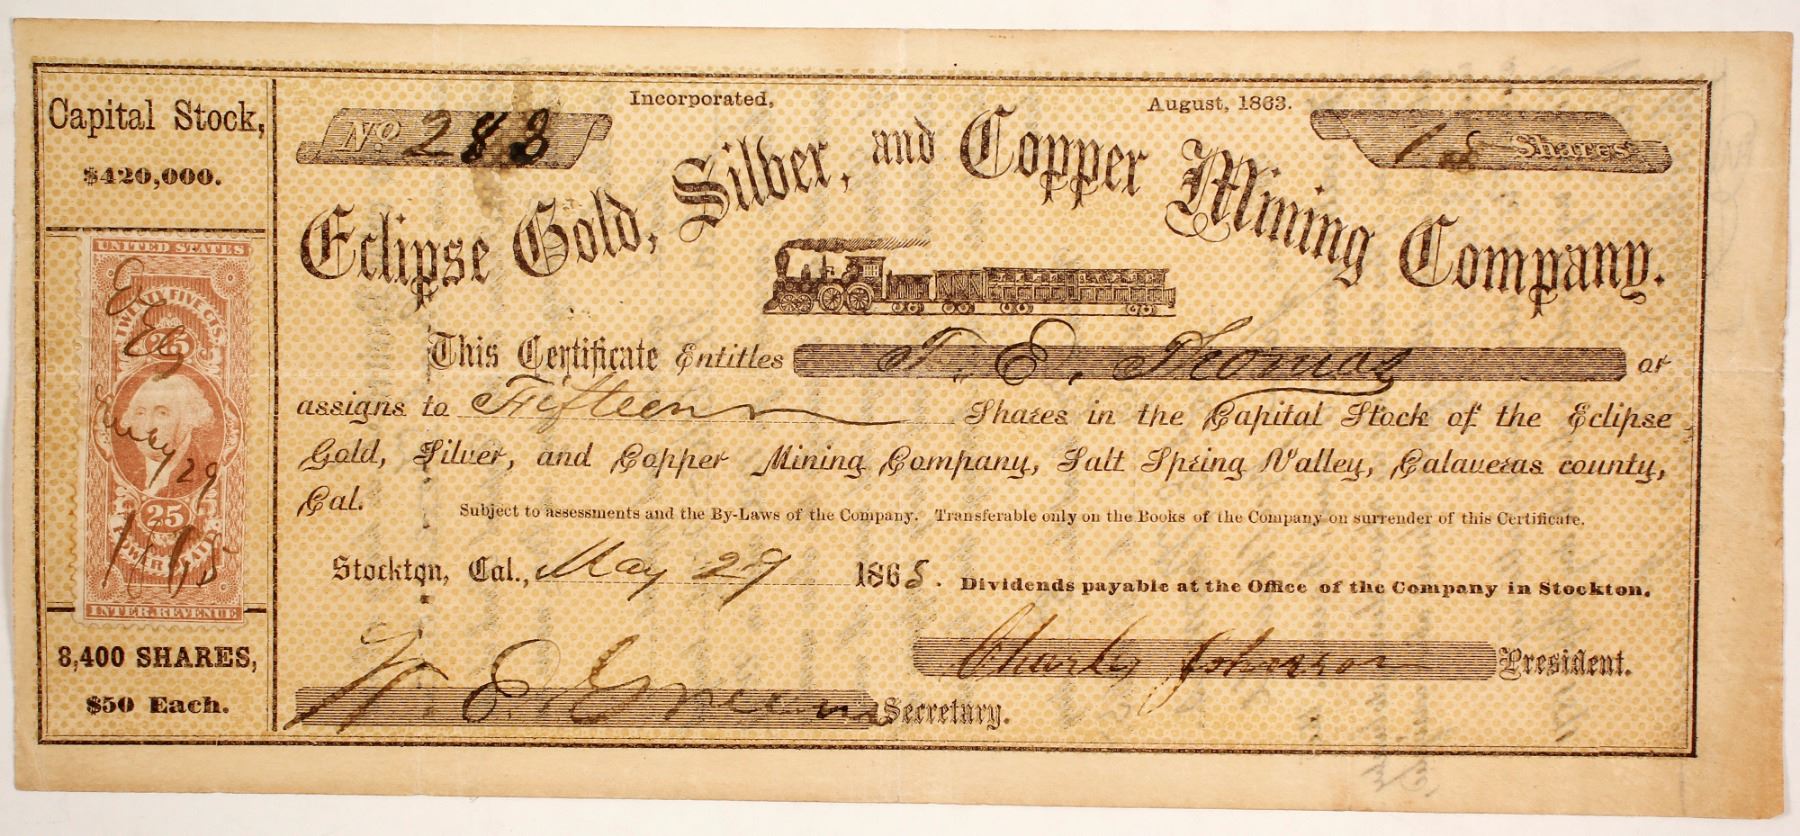 Capital Stock,
$420,000.
UNITED STATES
TWENTY FIVE CTS.
25
May 29
25
INTER. REVENUE
8,400 SHARES,
$50 Each.
Incorporated, August, 1863.
No 283
Shares
Eclipse Gold, Silver, and Copper Mining Company.
This Certificate Entitles T. E. Thomas or
assigns to Fifteen Shares in the Capital Stock of the Eclipse
Gold, Silver, and Copper Mining Company, Salt Spring Valley, Calaveras county,
Cal. Subject to assessments and the By-Laws of the Company. Transferable only on the Books of the Company on surrender of this Certificate.
Stockton, Cal., May 29 1865. Dividends payable at the Office of the Company in Stockton.
Charley Johnson President.
E. Green Secretary.